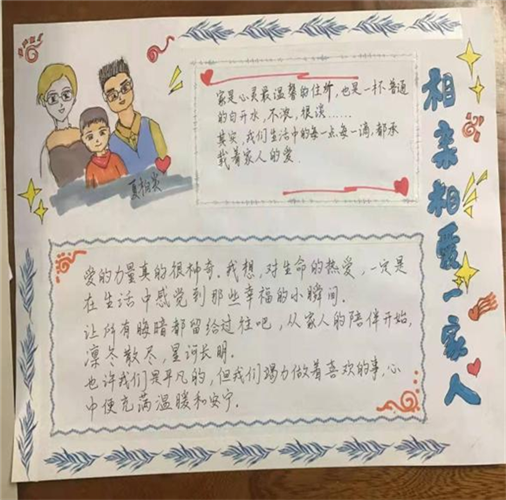 相亲相爱一家人
家是心灵最温馨的住所,也是一杯普通
的白开水,不浓,很淡……
其实,我们生活中的每一点每一滴,都承
载着家人的爱.
爱的力量真的很神奇。我想,对生命的热爱,一定是
在生活中感觉到那些幸福的小瞬间.
让所有晦暗都留给过往吧,从家人的陪伴开始,
凛冬散尽,星河长明.
也许我们是平凡的,但我们竭力做着喜欢的事,心
中便充满温暖和安宁.